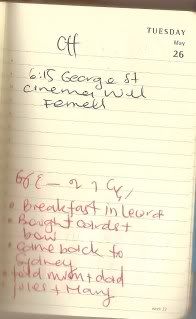 TUESDAY
May
26
Off
6:15 George St
cinema Will
Ferrell
• Breakfast in Leura
• Bought cards +
bow
• came back to
Sydney
• told mum + dad
Jules + Mary
week 22